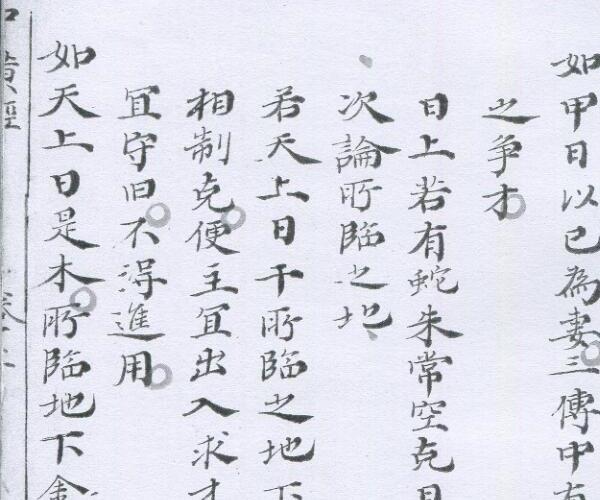 如甲日以己為妻三傳中有
之争才
日上若有蛇朱常空克日
次論所臨之地
若天上日干所臨之地下
相制克便主宜出入求才
宜守旧不得進用
如天上日是木所臨地下金
黄經